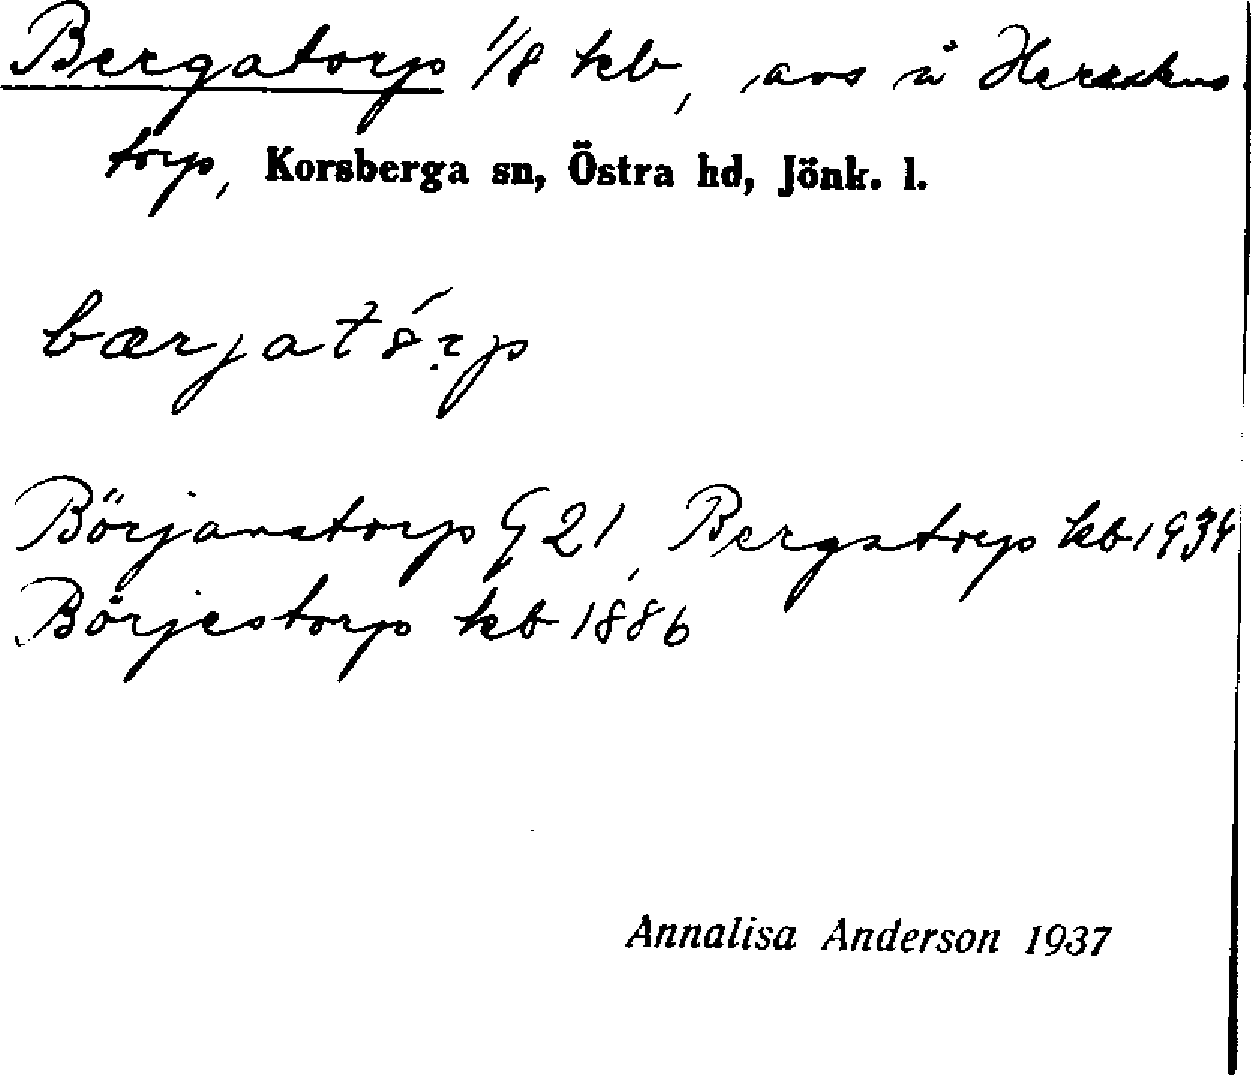 Bergatorp 1/8 kb, avs å
torp, Korsberga sn, Östra hd, Jönk. l.
bærjatórp
Börjanstorp G 21, Bergatorp kb 1934
Börjestorp kb 1886
Annalisa Anderson 1937